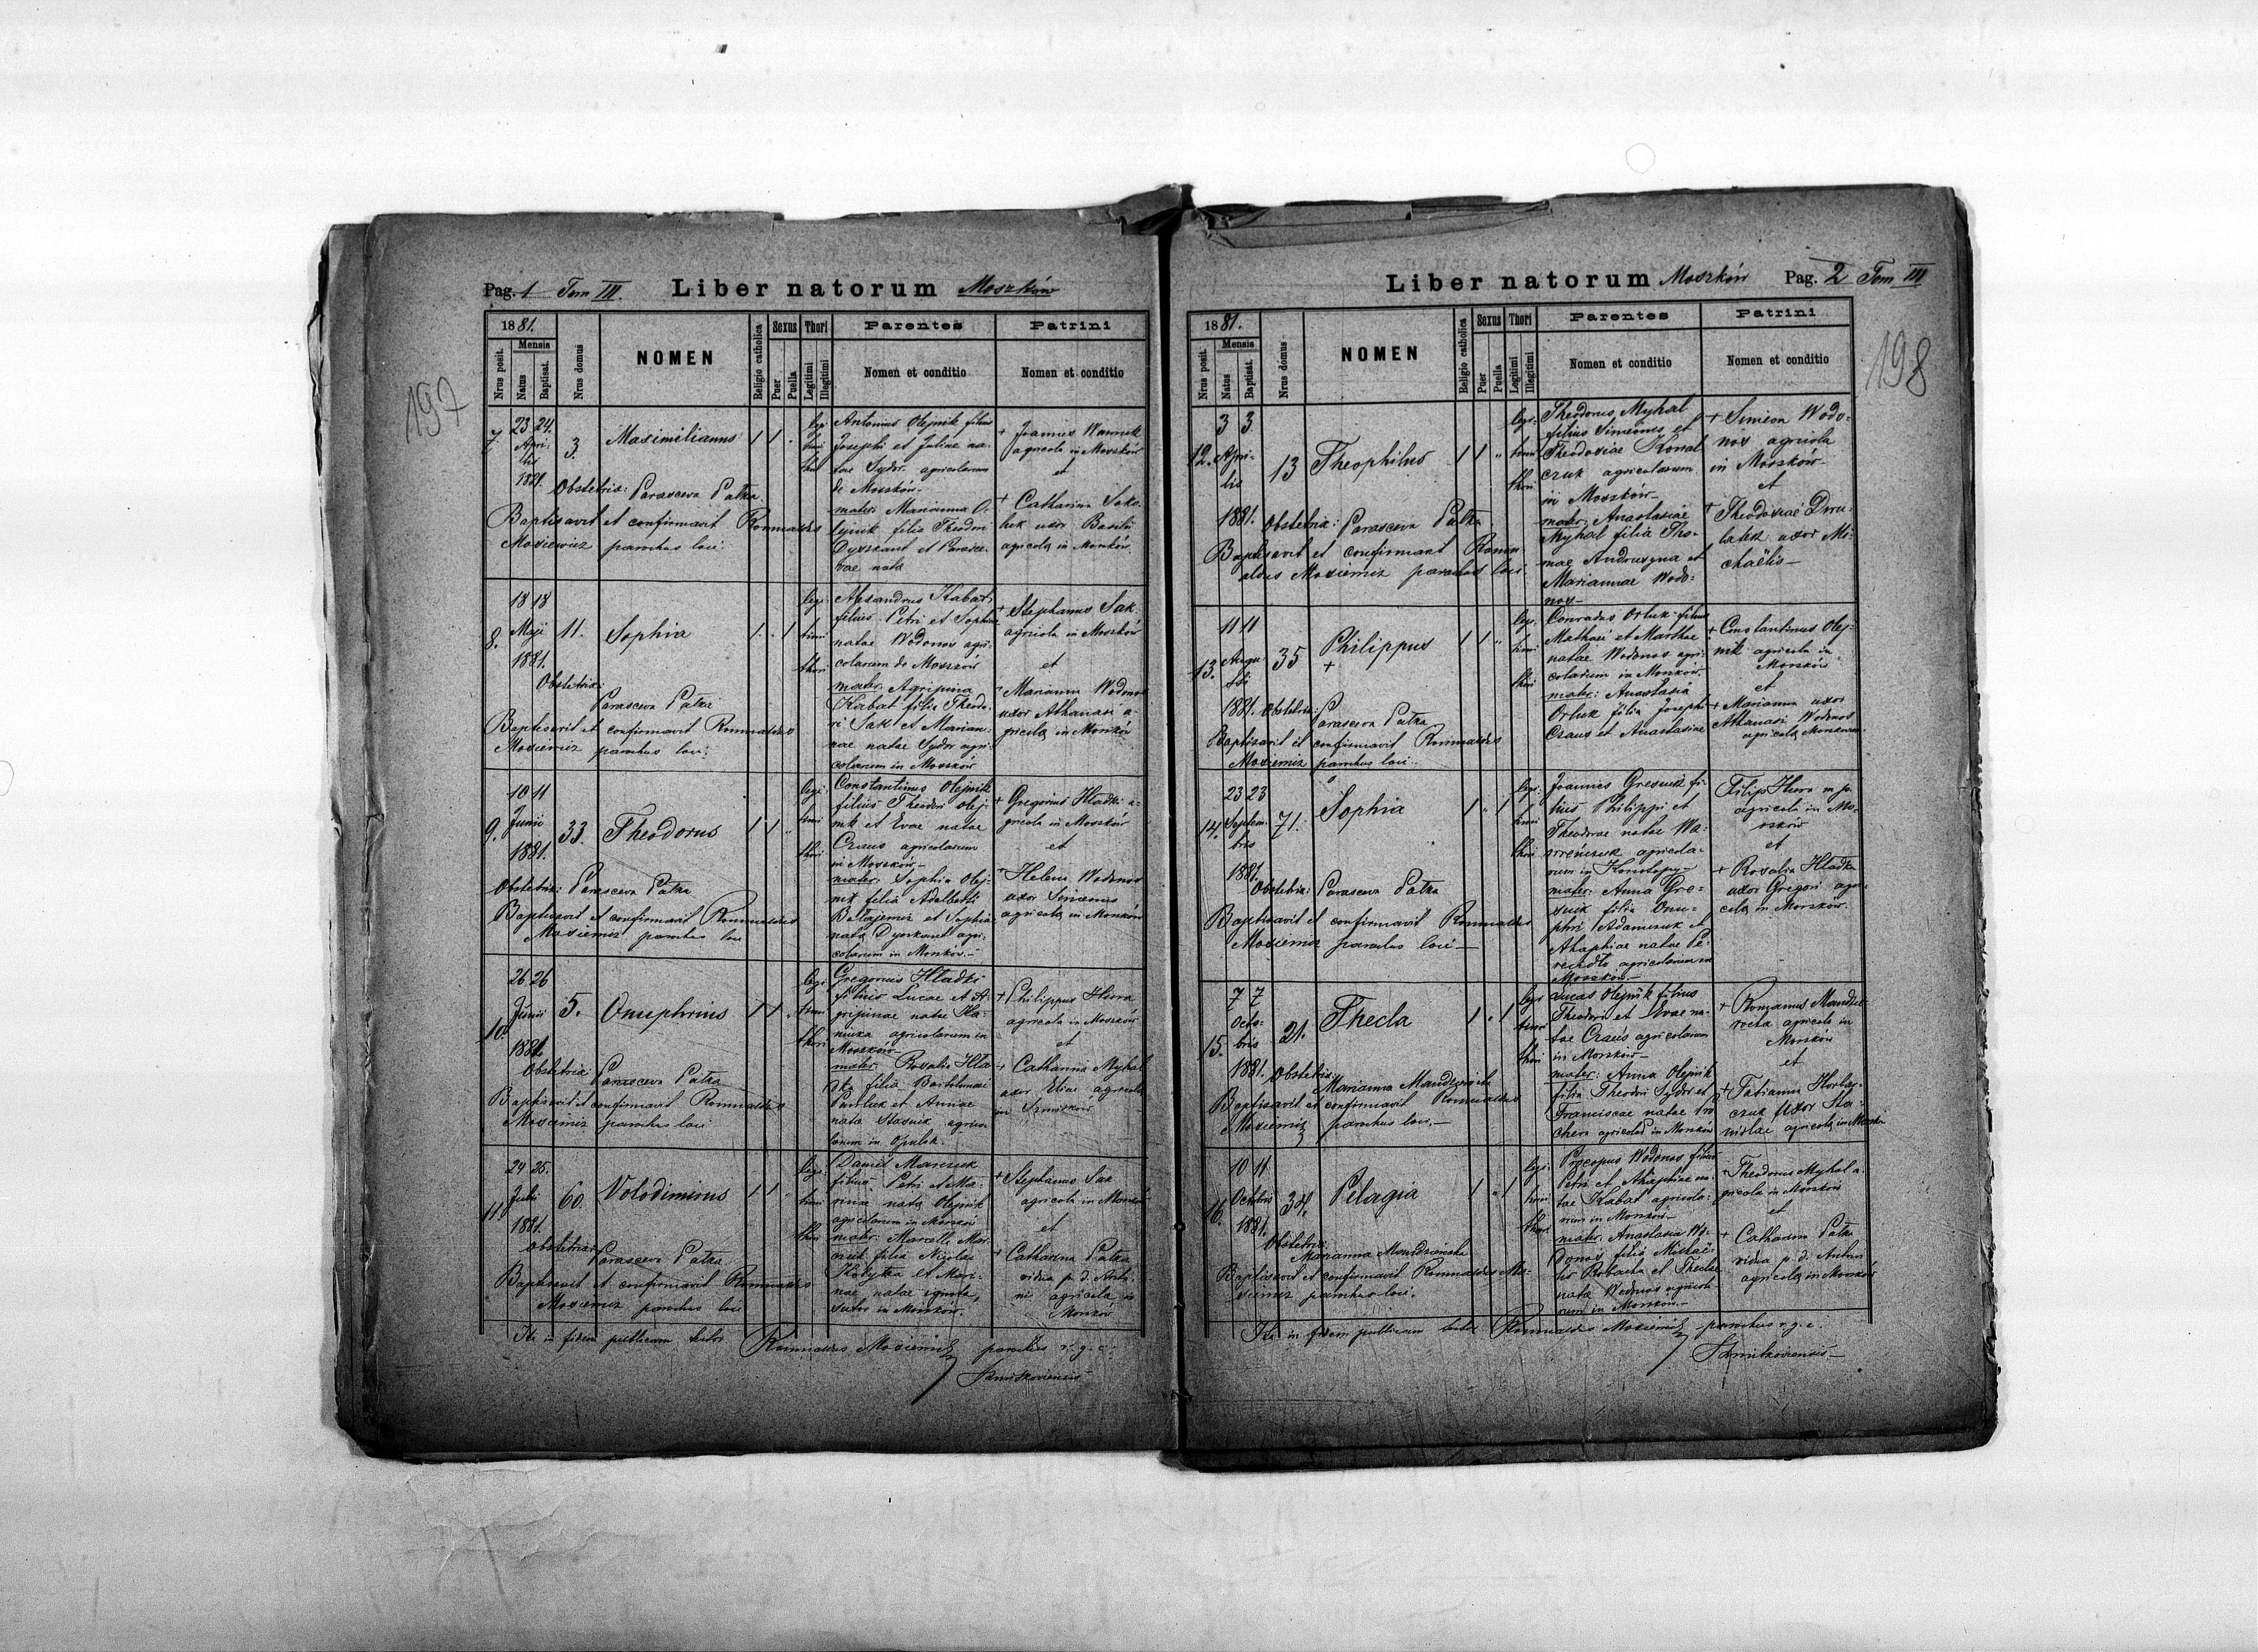 197
Pag. 1 Tom III. Liber natorum Moszków
1881.
Nrus posit.
Mensis
Natus
Baptisat.
Nrus domus
NOMEN
Religio catholica
Sexus
Puer
Puella
Thori
Legitimi
Illegitimi
Parentes
Nomen et conditio
Patrini
Nomen et conditio
7.
23 24.
Apri-
lis
1881.
3.
Maximilianus
1 1
legi
timi
thori
Antonius Olejnik filius
Josephi et Juliae na-
tae Sydor agricolarum
de Moszków-
mater: Marianna O-
lejnik filia Theodori
et Parasce-
vae nata
+ Joannes
agricola in Moszków
et
+ Catharina
uxor Basilii
agricola in Moszków
Obstetrix: Parasceva Patka
Baptisavit et confirmavit Romualdus
Mosiewicz parochus loci
8.
18 18
Maji
1881.
11.
Sophia
1 1
legi
timi
thori
Alexandrus Kabat
filius Petri et Sophiae
natae Wodonos agri-
colarum de Moszków
mater: Agripina
Kabat filia Theodo-
ri Sak et Marian-
nae natae Sydor agri-
colarum in Moszków
+ Stephanus Sak
agricola in Moszków
et
+ Marianna Wodonos
uxor Athanasi a-
gricola in Moszków
Obstetrix:
Parasceva Patka
Baptisavit et confirmavit Romualdus
Mosiewicz parochus loci
9.
10 11
Junii
1881.
33.
Theodorus
1 1
legi
timi
thori
Constantinus Olejnik
filius Theodori Olej-
nik et Evae natae
Craus agricolarum
in Moszków-
mater: Sophia Olej-
nik filia Adalberti
et Sophiae
nata agri-
colarum in Moszków.-
+ Gregorius Hladki a-
gricola in Moszków
et
+ Helena Wodonos
uxor Simeonis
agricola in Moszków
Obstetrix: Parasceva Patka
Baptisavit et confirmavit Romualdus
Mosiewicz parochus loci
10.
26 26
Junii
1881.
5.
Onuphrius
1 1
legi
timi
thori
Gregorius Hladki
filius Lucae et A-
gripinae natae Ha-
agricolarum in
Moszków-
mater: Rosalia Hla
dka filia Bartolomaei
Pawluk et Annae
nata Stasiuk agrico
larum in Opulsk.-
+ Philippus Hura
agricola in Moszków
et
+ Catharina Myhal
uxor Eliae agricola
in
Obstetrix: Parasceva Patka
Baptisavit et confirmavit Romualdus
Mosiewicz parochus loci
11.
24 25.
Julii
1881.
60.
Volodimirus
1 1
legi
timi
thori
Daniel Marczuk
filius Petri et Ma-
rina nata Olejnik
agricolarum in Moszków
mater: Marcella Mar-
czuk filia Nicolai
et Mari-
nae natae ignota,
sutor in Moszków.
+ Stephanus Sak
agricola in Moszków
et
+ Catharina Patka
vidua p. d. Anto-
ni agricola in
Moszków
Obstetrix
Parasceva Patka
Baptisavit et confirmavit Romualdus
Mosiewicz parochus loci
Ita in fidem publicam testor Romualdus Mosiewicz parochus r. g. c.
198
Liber natorum Moszków Pag. 2 Tom III
1881.
Nrus posit.
Mensis
Natus
Baptisat.
Nrus domus
NOMEN
Religio catholica
Sexus
Puer
Puella
Thori
Legitimi
Illegitimi
Parentes
Nomen et conditio
Patrini
Nomen et conditio
12.
3 3
Apri-
lis
1881.
13
Theophilus
1 1 "
legi-
timi
thori
Theodorus Myhal
filius Simeonis et
Theodosiae Kowal
czuk agricolarum
in Moszków-
mater: Anastasiae
Myhal filia Tho-
mae et
Mariannae Wodo-
nos-
+ Simeon Wodo-
nos agricola
in Moszków-
et
+ Theodosiae
uxor Mi-
chaëlis-
Obstetrix: Parasceva Patka
Baptisavit et confirmavit Romu-
aldus Mosiewicz parochus loci
13.
11 11
Augu-
sti
1881.
35
Philippus
+
1 1 "
legi.
timi
thori
Conradus Ortuk filius
Mathaei et Marthae
natae Wodonos agri-
colarum in Moszków-
mater: Anastasia
Ortuk filia Josephi
Craus et Anastasiae
+ Constantinus Olej-
nik agricola in
Moszków
et
+ Marianna uxor
Athanasi Wodonos
agricola
Obstetrix:
Parasceva Patka
Baptisavit et confirmavit Romualdus
Mosiewicz parochus loci-
14.
23 23
Septem-
bris
1881.
71.
Sophia
1 " 1
legi-
timi
thori
Joannes fi-
lius Philippi et
Theodorae natae
agricola-
rum in
mater: Anna
filia Onu-
phri Adamczuk et
Ahaphiae natae Pe-
agricolarum in
Moszków.-
Filip Hura
agricola in Mo-
szków
et
+ Rosalia Hladka
uxor Gregori agri-
cola in Moszków.
Obstetrix: Parasceva Patka
Baptisavit et confirmavit Romualdus
Mosiewicz parochus loci-
15.
7 7
Octo-
bris
1881.
21.
Thecla
1 " 1
legi
timi
thori
Lucas Olejnik filius
Theodori et Evae na-
tae Craus agricolarum
in Moszków-
mater: Anna Olejnik
filia Theodori Sydor et
Franciscae natae
agricolae in Moszków
+ Romanus
agricola in
Moszków
et
+ Tatianna
uxor
agricola in Moszków
Obstetrix:
Marianna
Baptisavit et confirmavit Romualdus
Mosiewicz parochus loci.-
16.
10 11
Octobris
1881.
34.
Pelagia
1 " 1
legi.
timi
thori
Procopus Wodonos filius
Petri et Ahaphiae na-
tae Kabat agricola-
rum in Moszków-
mater: Anastasia Wo-
donos filia Michaë-
lis et Theclae
nata Wodonos agricola
rum in Moszków.-
+ Theodorus Myhal a-
gricola in Moszków
et
+ Catharina Patka
vidua p. d. Antoni
agricola in Moszków
Obstetrix:
Marianna
Baptisavit et confirmavit Romualdus Mo-
siewicz parochus loci.
Ita in fidem publicam testor Romualdus Mosiewicz parochus r. g. c.